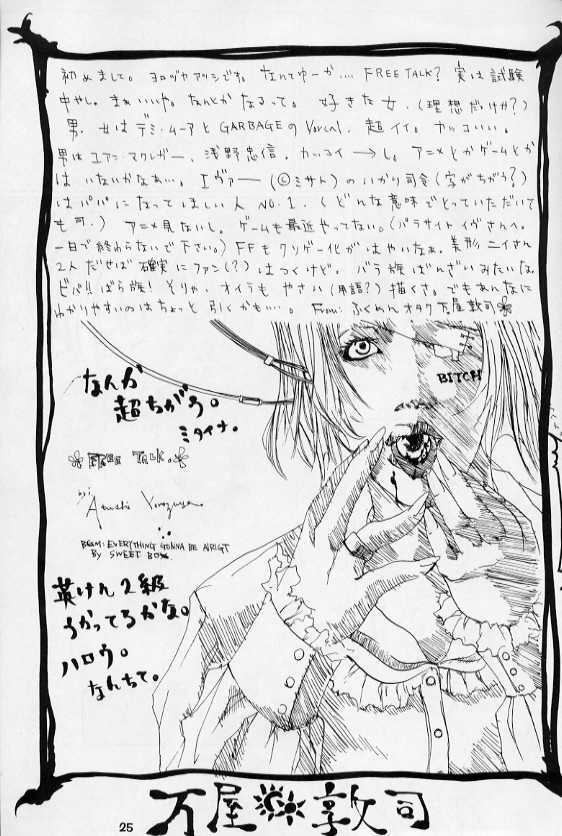 初めまして。ヨロヅヤアツシです。なんてゆーか…. FREE TALK? 実は試験
中やし。まぁいいや。なんとかなるって。好きな女.(理想だけか?)
男. 女はデミ・ムーアとGARBAGEのVocal. 超イイ。カッコいい。
男はユアン・マクレガー、浅野忠信。カッコイーし。アニメとかゲームとか
はいないかなぁ…。エヴァー(©ミサト)のいかり司令(字がちがう?)
はパパになってほしい人NO.1.(どんな意味でとっていただいて
も可.) アニメ見ないし。ゲームも最近やってない。(パラサイトイヴさんへ。
一日で終わらないで下さい。) FFもクソゲー化がはやいなぁ。美形ニイさん
2人だせば確実にファン(?)はつくけど。バラ族ばんざいみたいな。
ビバ!!ばら族! そりゃ、オイラもやさい(用語?)描くさ。でもあんなに
わかりやすいのはちょっと引くかも…。From: ふくめんオタク万屋敦司
BITCH
なんか
超ちがう。
ミタイナ。
FREE TALK.
by: Atsushi Yorozuya
BGM: EVERYTHING GONNA BE AIRIGT
By SWEET BOX
英けん2級
うかってるかな。
ハロウ。
なんちて。
25
万屋敦司